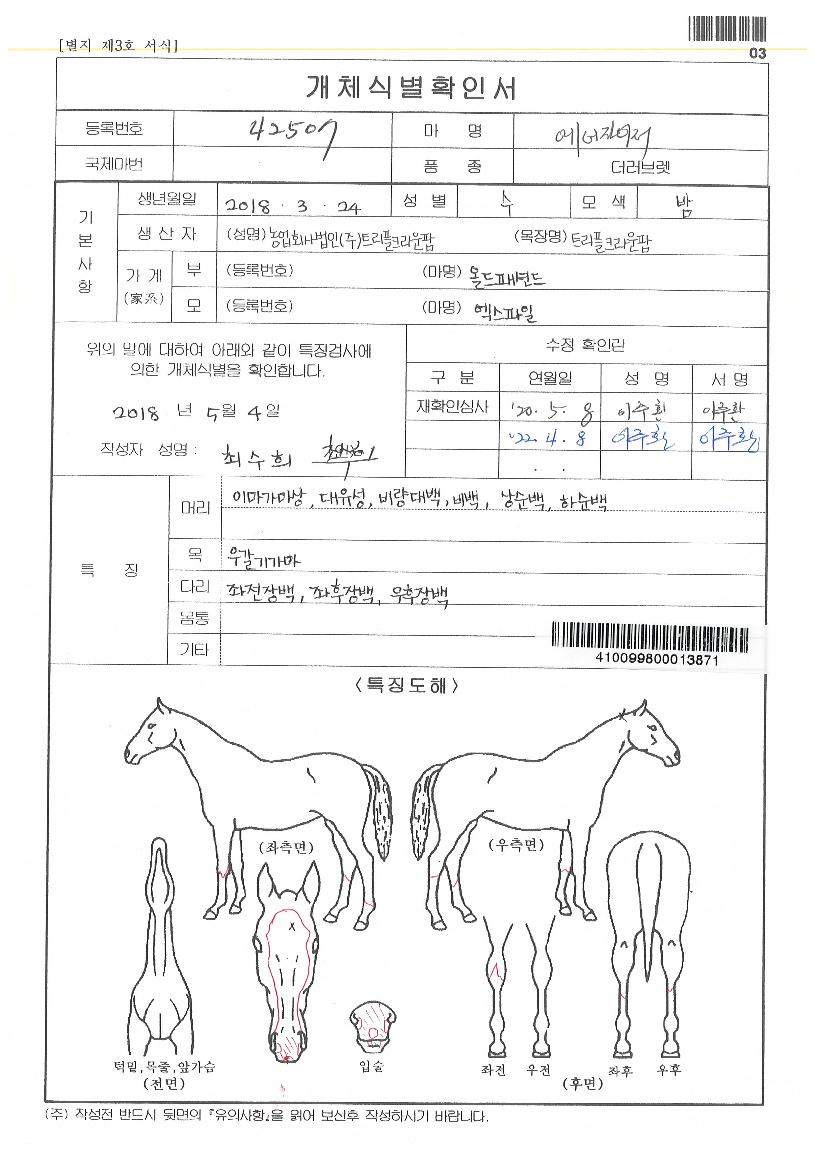 [별지 제3호 서식]
03
개체식별확인서
등록번호 42507 마 명 에너지어저
국제마번 품 종 더러브렛
기본사항
생년월일 2018 · 3 · 24 성 별 수 모 색 밤
생 산 자 (성명) 농업회사법인(주)트리플크라운팜 (목장명) 트리플크라운팜
가 계 (家系)
부 (등록번호) (마명) 올드패션드
모 (등록번호) (마명) 엑스파일
위의 말에 대하여 아래와 같이 특징검사에
의한 개체식별을 확인합니다.
2018 년 5월 4일
작성자 성명 : 최수희
수정 확인란
구 분 연월일 성 명 서 명
재확인심사 '20. 5. 8 이주환 이주환
'22. 4. 8 이주환 이주환
. .
특 징
머리 이마가마상, 대유성, 비량대백, 비백, 상순백, 하순백
목 우갈기가마
다리 좌전장백, 좌후장백, 우후장백
몸통
기타
410099800013871
<특징도해>
(좌측면)
(우측면)
턱밑, 목줄, 앞가슴
(전면)
입술
좌전 우전 좌후 우후
(후면)
(주) 작성전 반드시 뒷면의 『유의사항』을 읽어 보신후 작성하시기 바랍니다.